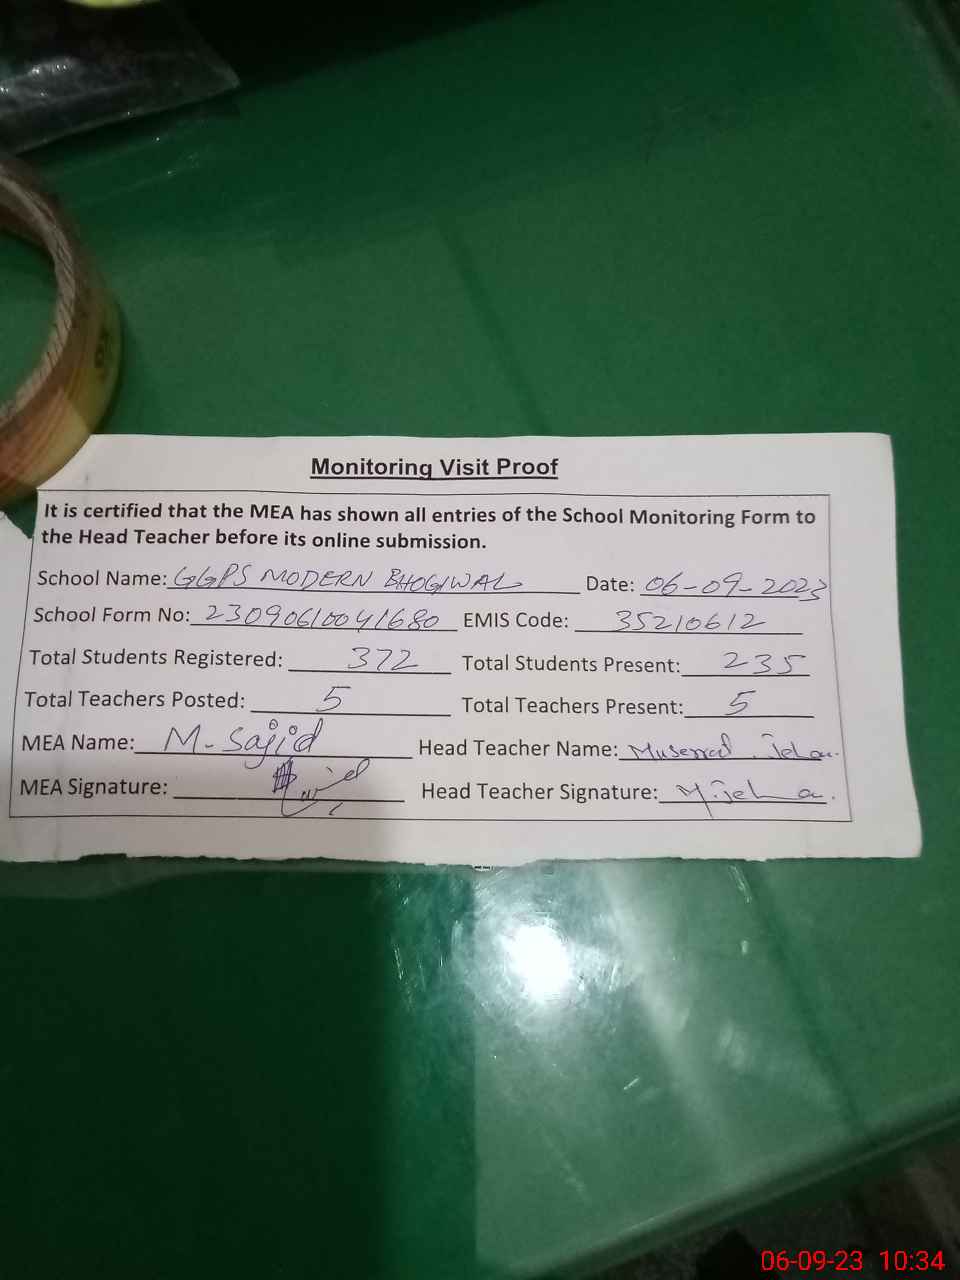 Monitoring Visit Proof
It is certified that the MEA has shown all entries of the School Monitoring Form to
the Head Teacher before its online submission.
School Name: GGPS MODERN BHOGIWAL Date: 06-09-2023
School Form No: 23090610041680 EMIS Code: 35210612
Total Students Registered: 372 Total Students Present: 235
Total Teachers Posted: 5 Total Teachers Present: 5
MEA Name: M. Sajid Head Teacher Name: Muserrat Jehan.
MEA Signature: Head Teacher Signature: M. Jehan.
06-09-23 10:34